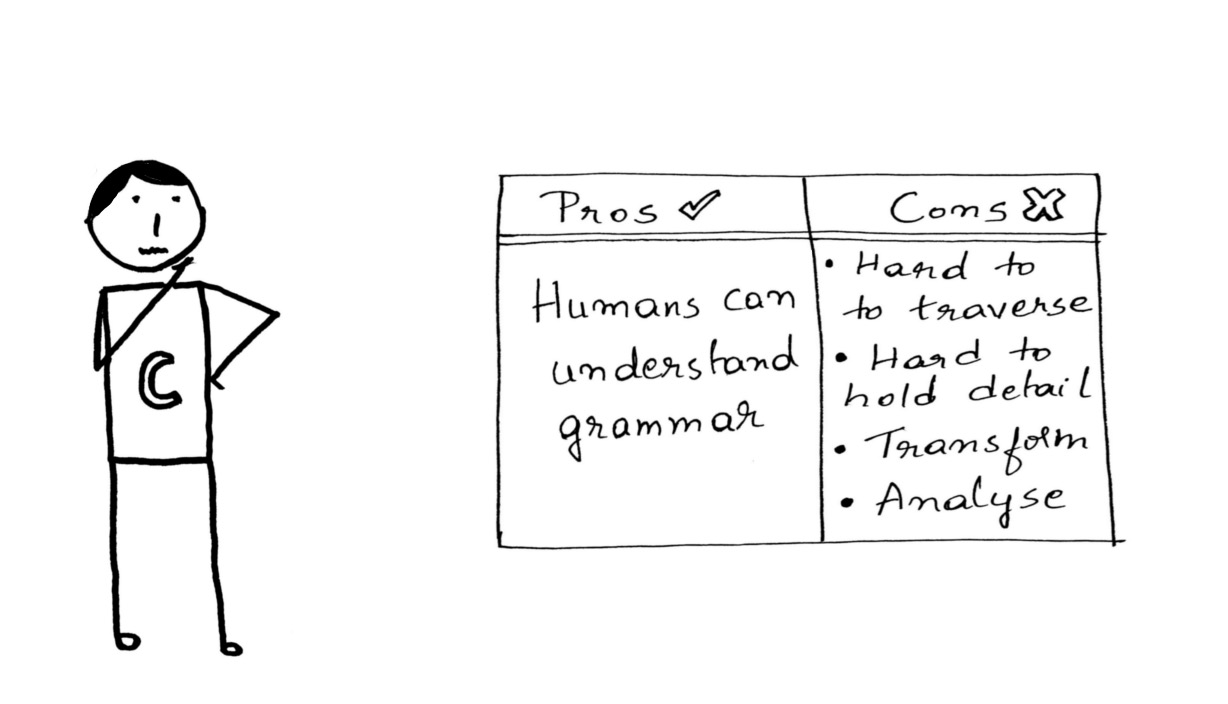 C
Pros
Cons
Humans can
understand
grammar
• Hard to
to traverse
• Hard to
hold detail
• Transform
• Analyse